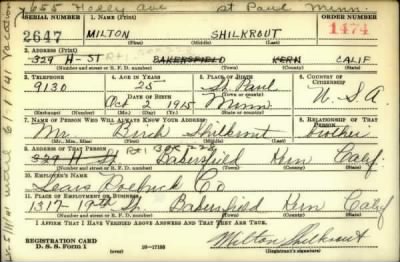 655 Holly Ave St Paul Minn.
SERIAL NUMBER 1. NAME (Print) ORDER NUMBER
2647 MILTON SHILKROUT 1474
(First) (Middle) (Last)
2. ADDRESS (Print)
329 H-ST BAKERSFIELD KERN CALIF
(Number and street or R. F. D. number) (Town) (County) (State)
3. TELEPHONE 4. AGE IN YEARS 5. PLACE OF BIRTH 6. COUNTRY OF CITIZENSHIP
9130 25 St. Paul
DATE OF BIRTH
Oct 2 1915 Minn U.S.A
(Exchange) (Number) (Mo.) (Day) (Yr.) (Town or county) (State or country)
7. NAME OF PERSON WHO WILL ALWAYS KNOW YOUR ADDRESS 8. RELATIONSHIP OF THAT PERSON
Mr. Shilkrout brother
(Mr., Mrs., Miss) (First) (Middle) (Last)
9. ADDRESS OF THAT PERSON
329 H St. Bakersfield Kern Calif.
(Number and street or R. F. D. number) (Town) (County) (State)
10. EMPLOYER'S NAME
Sears Roebuck Co
11. PLACE OF EMPLOYMENT OR BUSINESS
1317-19th St. Bakersfield Kern Calif
(Number and street or R. F. D. number) (Town) (County) (State)
I AFFIRM THAT I HAVE VERIFIED ABOVE ANSWERS AND THAT THEY ARE TRUE.
REGISTRATION CARD
D. S. S. Form 1 16-17105 Milton Shilkrout